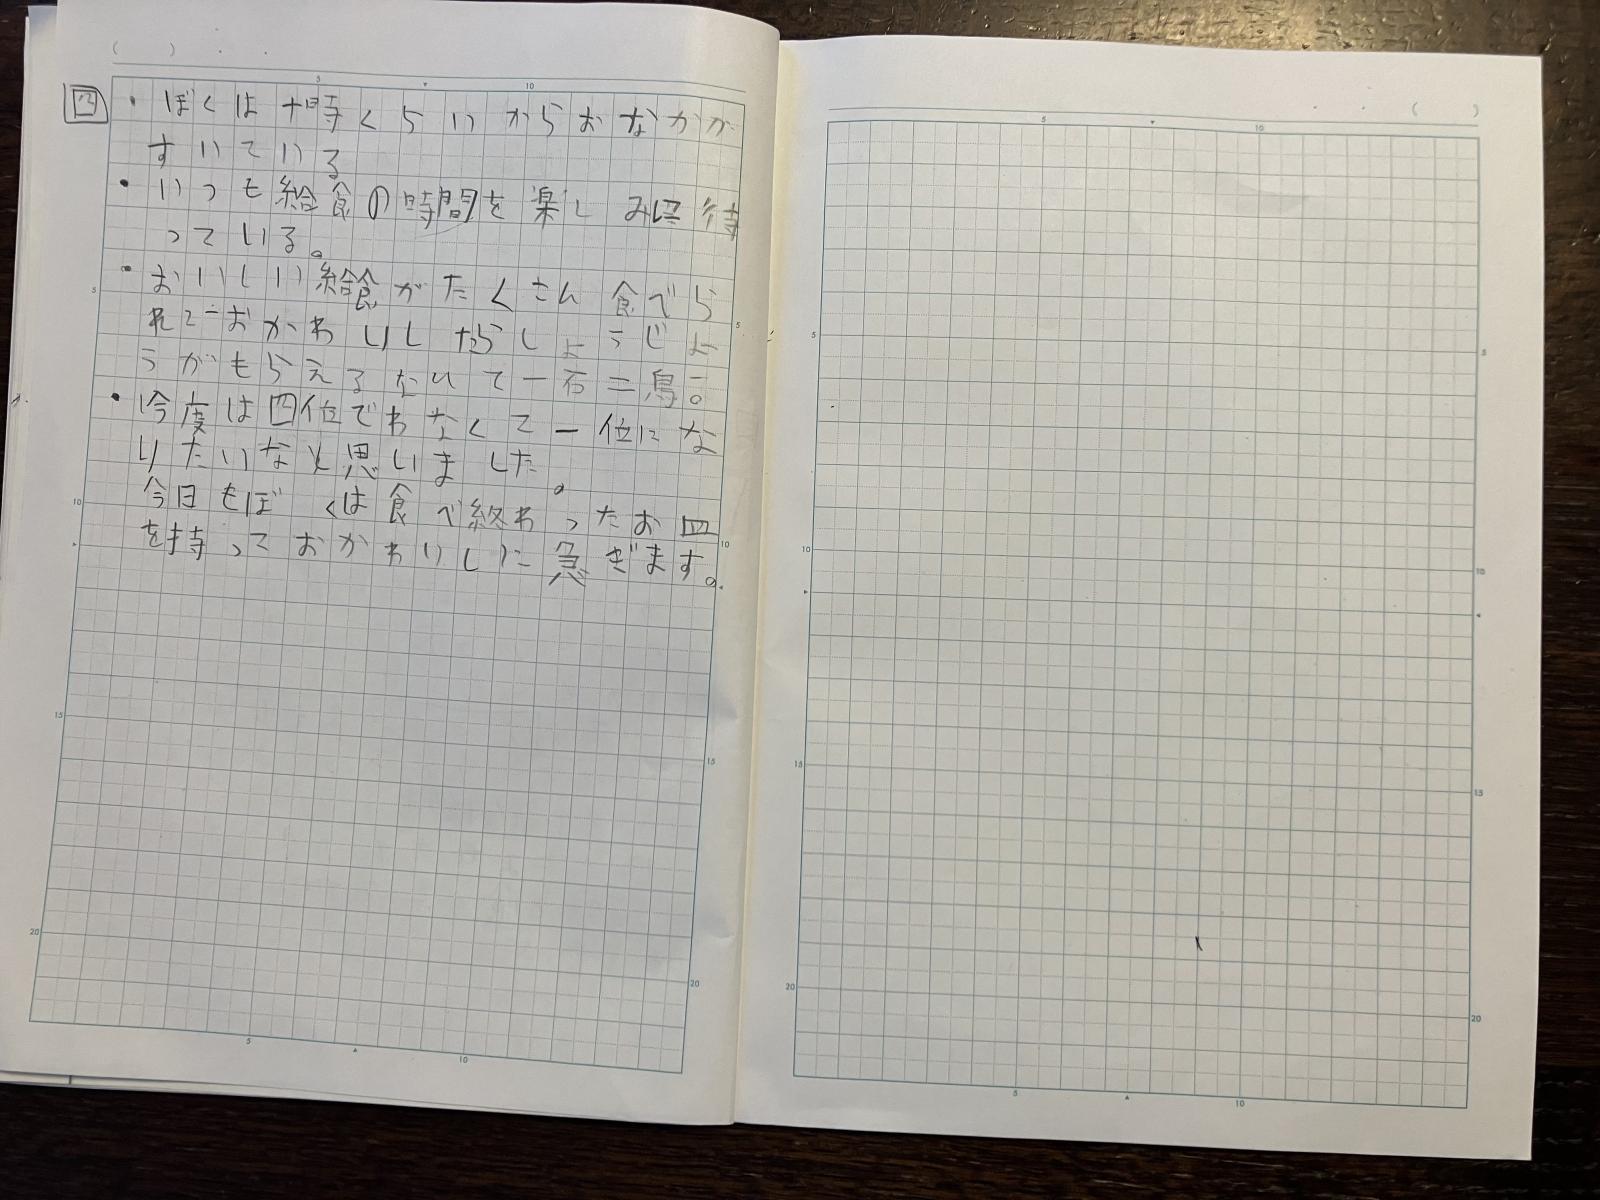 四 ・ぼくは十時くらいからおなかが
すいている
・いつも給食の時間を楽しみに待
っている。
・おいしい給食がたくさん食べら
れておかわりしたらしょうじょ
うがもらえるなんて一石二鳥。
・今度は四位でわなくて一位にな
りたいなと思いました。
今日もぼくは食べ終わったお皿
を持っておかわりしに急ぎます。